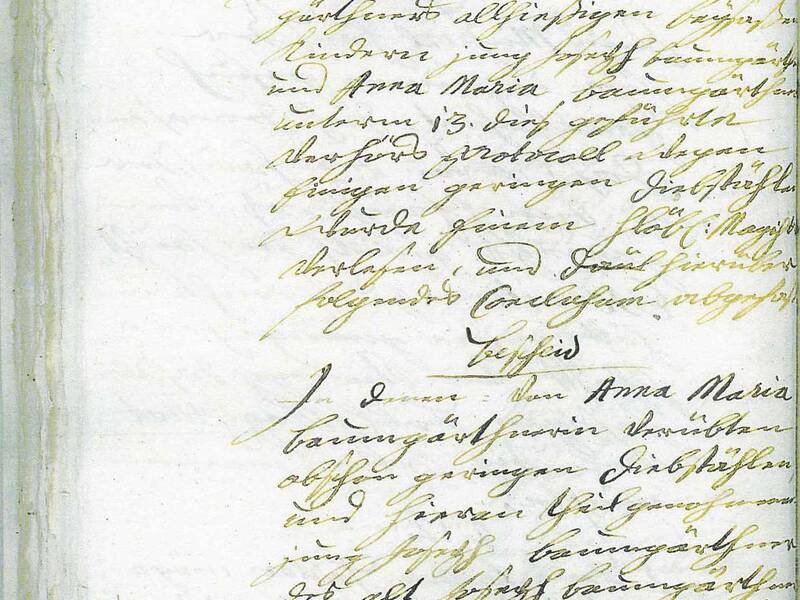 gärthners allhießigen beysaßen
Kindern jung Joseph baumgärth
und Anna Maria baumgärthner
unterm 13. dies geführte
Verhörs protocoll wegen
Einigen geringen Diebstählen
wurde Einem hlöbl: Magist
Verlesen, und hierüber
folgendes abgefas
bescheid
In denen von Anna Maria
baumgärthnerin Verübten
obschon geringen Diebstählen
und hieran theilgenohmen
jung Joseph baumgärthner
des alt Joseph baumgärthner